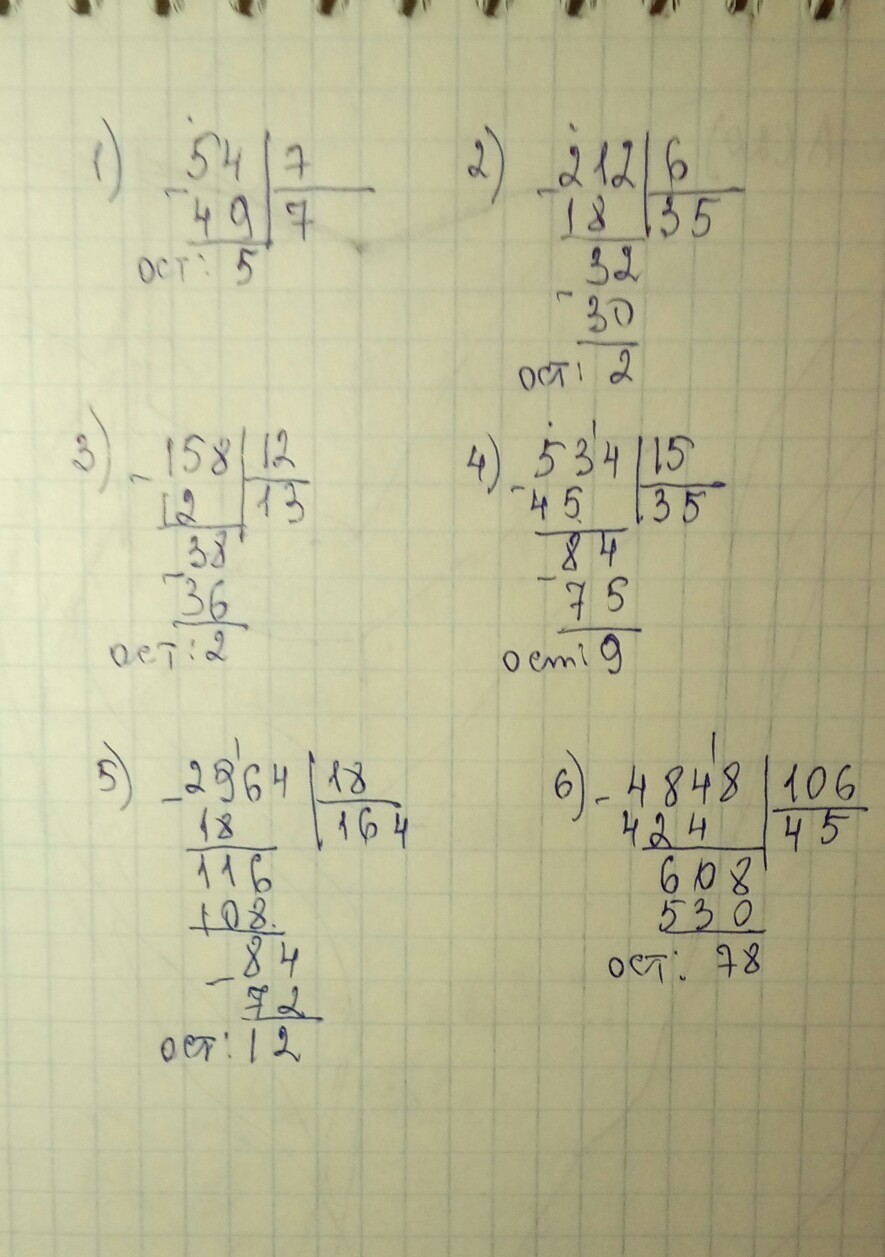 1) 54 | 7
- 49 | 7
ост: 5
2) 212 | 6
- 18 | 35
32
- 30
ост: 2
3) - 158 | 12
12 | 13
38
- 36
ост: 2
4) - 534 | 15
45 | 35
84
- 75
ост: 9
5) - 2964 | 18
18 | 164
116
108
84
- 72
ост: 12
6) - 4848 | 106
424 | 45
608
530
ост: 78